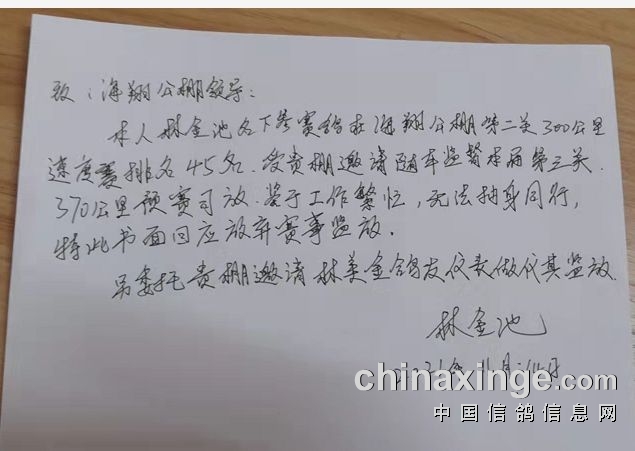 致：海翔公棚领导：
本人林金池名下参赛鸽在海翔公棚第二关300公里
速度赛排名45名.受贵棚邀请随车监督本届第三关.
370公里预赛司放.鉴于工作繁忙,无法抽身同行,
特此书面回应放弃赛事监放.
另委托贵棚邀请林美金鸽友做其监放.
林金池
2021年11月14日
chinaxinge.com
中国信鸽信息网